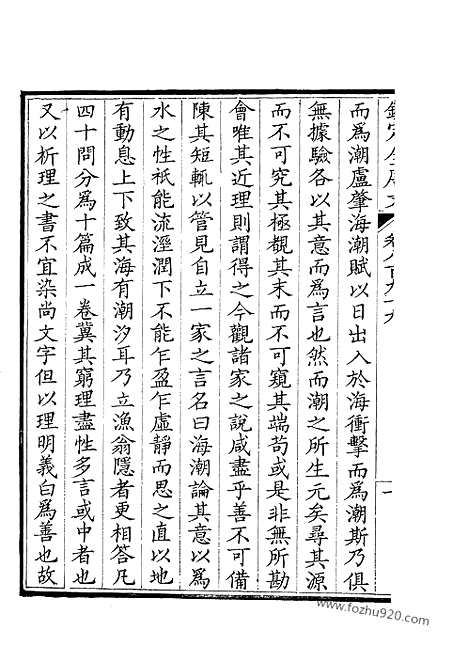 而為潮盧肇海潮賦以日出入於海衝擊而為潮斯乃俱
無據驗各以其意而為言也然而潮之所生元矣尋其源
而不可究其極覩其末而不可窺其端苟或是非無所勘
會唯其近理則謂得之今觀諸家之說咸盡乎善不可備
陳其短輒以管見自立一家之言名曰海潮論其意以為
水之性祇能流溼潤下不能乍盈乍虛靜而思之直以地
有動息上下致其海有潮汐耳乃立漁翁隱者更相答凡
四十問分為十篇成一卷冀其窮理盡性多言或中者也
又以析理之書不宜染尚文字但以理明義白為善也故
www.fozhu920.com